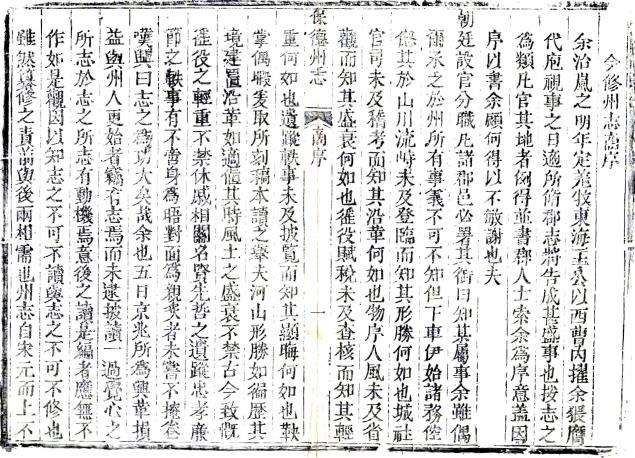 今修州志高序
余治嵐之明年定羌牧東海王公以西曹內擢余猥膺
代庖視事之日適所脩郡志將告成甚盛事也按志之
為類凡官其地者例得並書郡人士索余為序意蓋因
序以書余顧何得以不敏謝也夫
朝廷設官分職凡諸郡邑必署其銜曰知某屬事余雖偶
爾承乏於州所有事義不可不知但下車伊始諸務倥
傯其於山川流峙未及登臨而知其形勝何如也城社
官司未及稽考而知其沿革何如也物序人風未及省
觀而知其盛衰何如也徭役賦稅未及查核而知其輕
保德州志
高序
一
重何如也遺蹤軼事未及披覽而知其顯晦何如也鞅
掌偶暇爰取所刻稿本讀之舉夫河山形勝如徧歷其
境建置沿革如適值其時風土之盛衰不禁古今致慨
徭役之輕重不禁休戚相關名賢先哲之遺蹤忠孝廉
節之軼事有不啻身為晤對面為親炙者未嘗不掩卷
嘆興曰志之為功大矣哉余也五日京兆所為興革損
益與州人更始者竊有志焉而未逮披讀一過覺心之
所志於志之所志有動機焉意後之讀是編者應無不
作如是觀因以知志之不可不讀與志之不可不修也
雖然纂修之責前與後兩相需也州志自宋元而上不